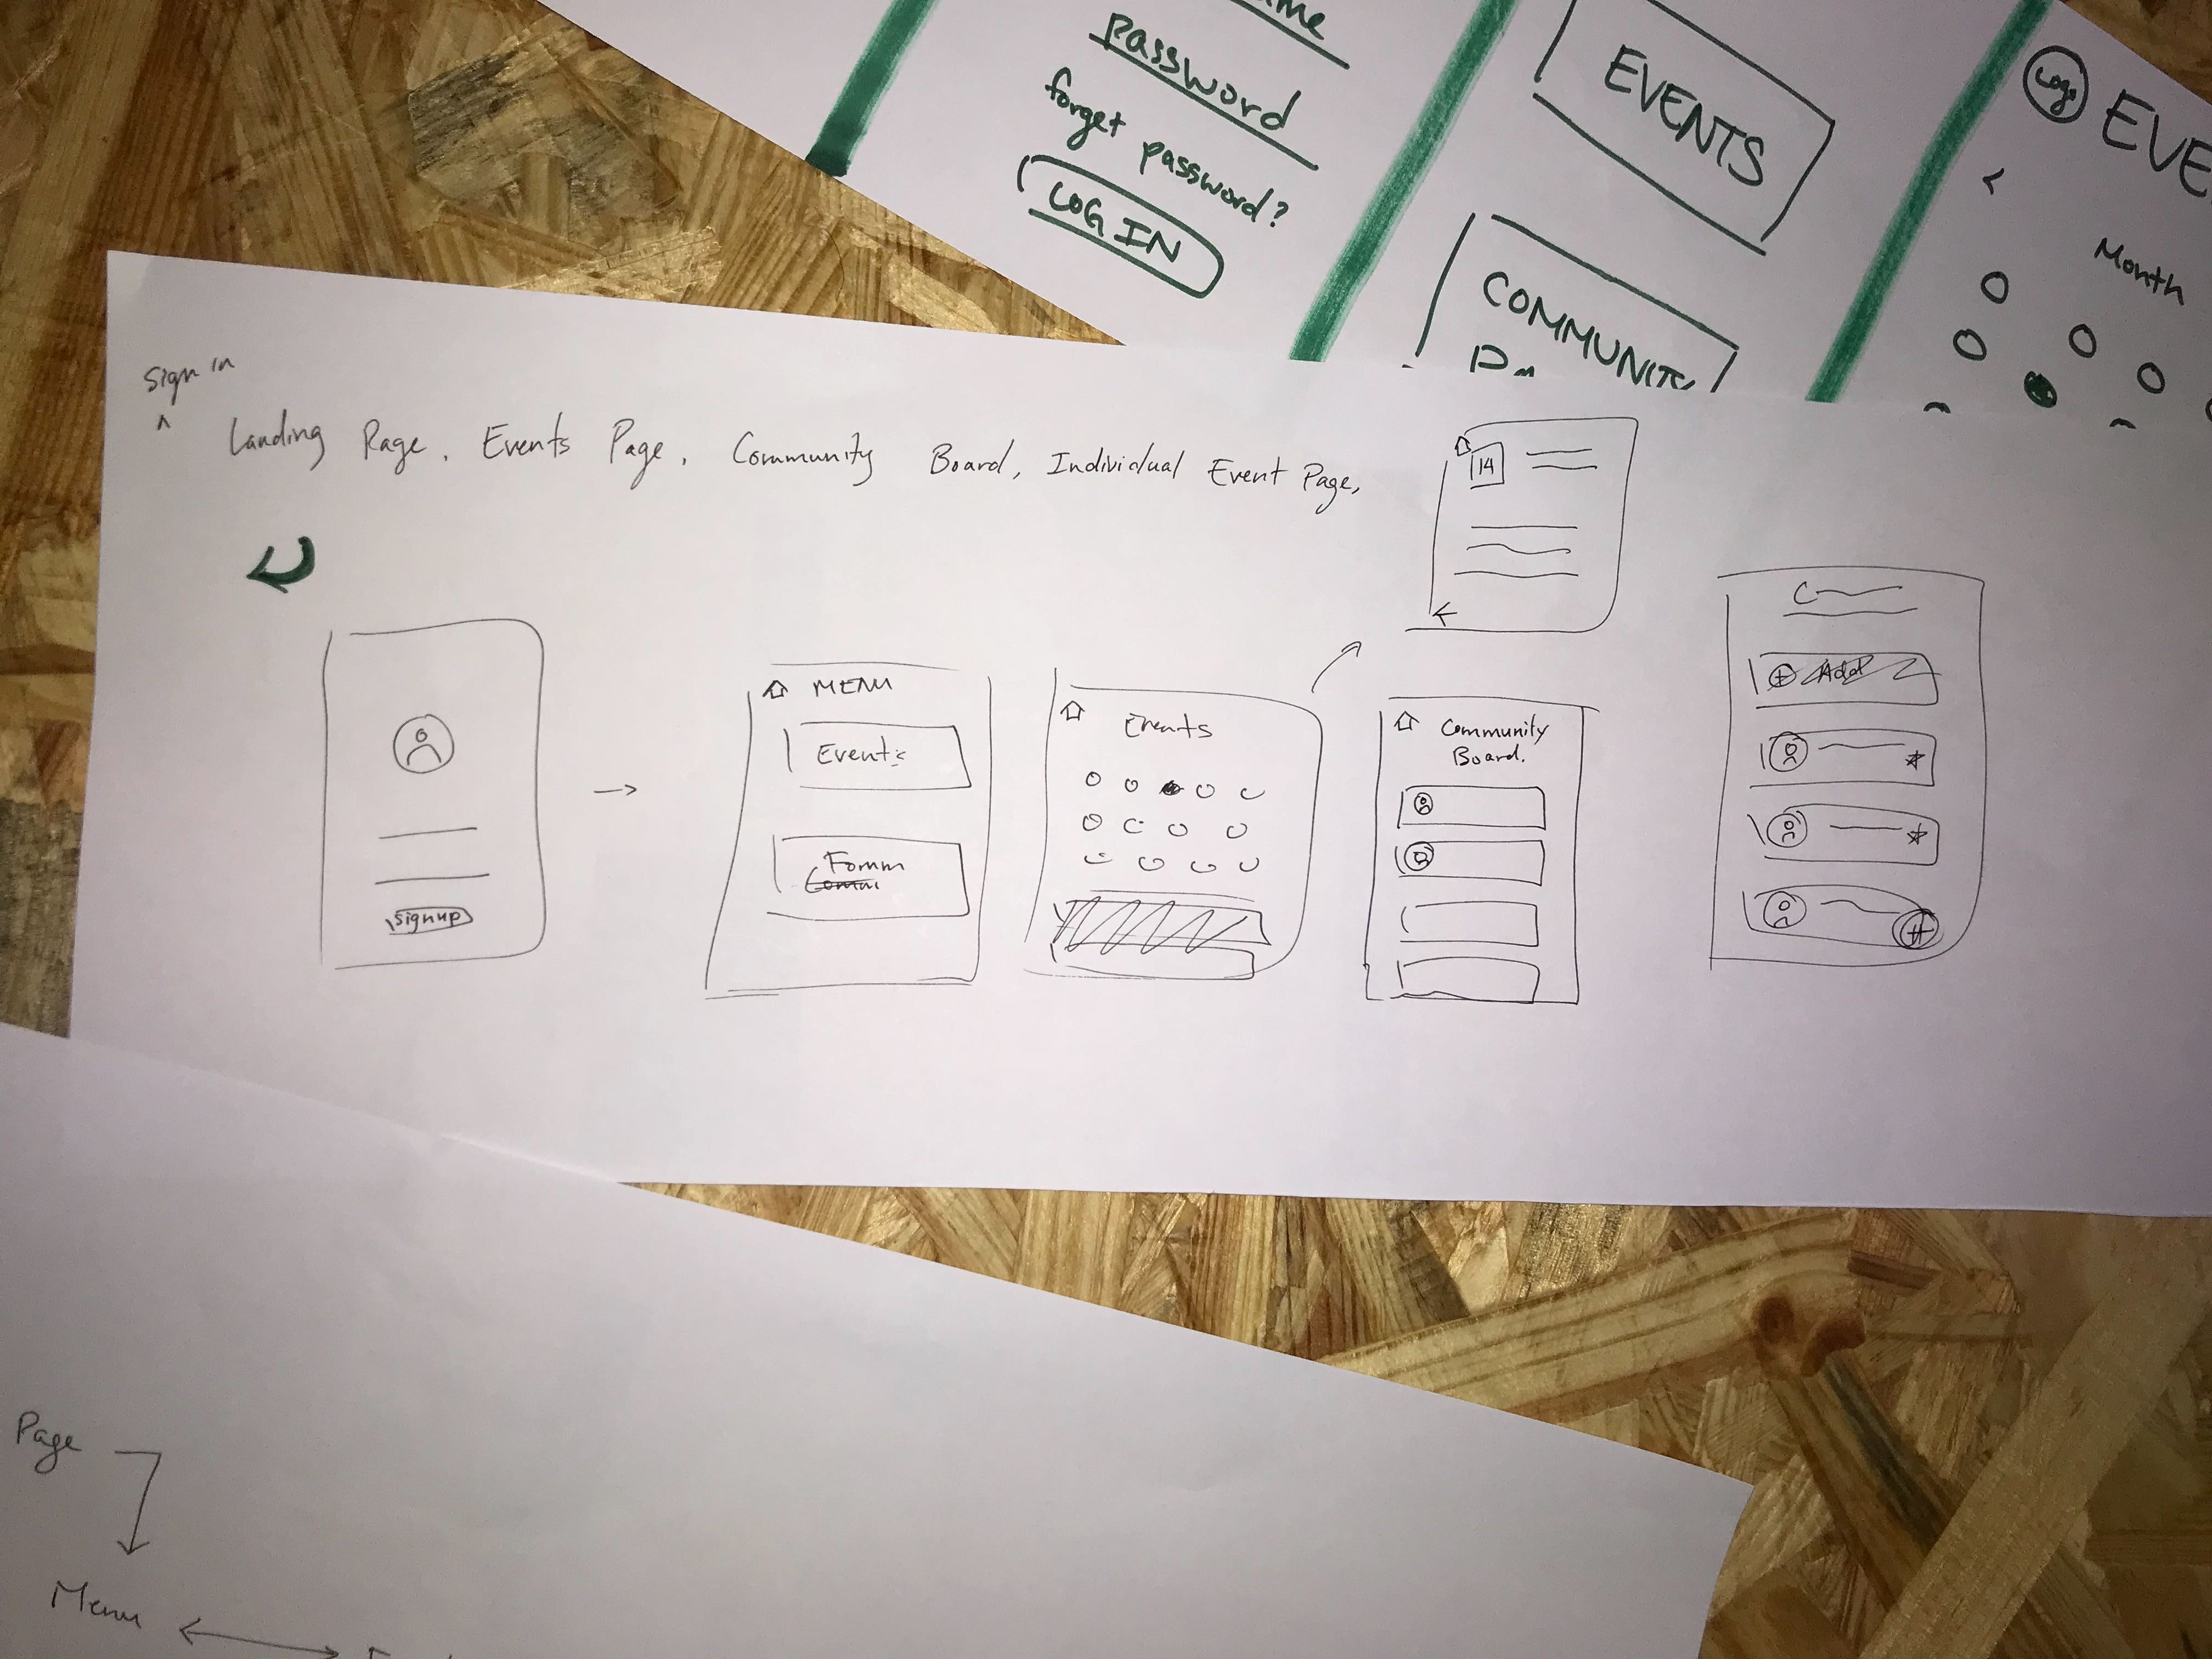 Password
forget password?
LOG IN
EVENTS
COMMUNITY
Logo
Month
Sign in
^ Landing Page, Events Page, Community Board, Individual Event Page,
14
Signup
MENU
Events
Events
Community
Board.
Add
Page
Menu